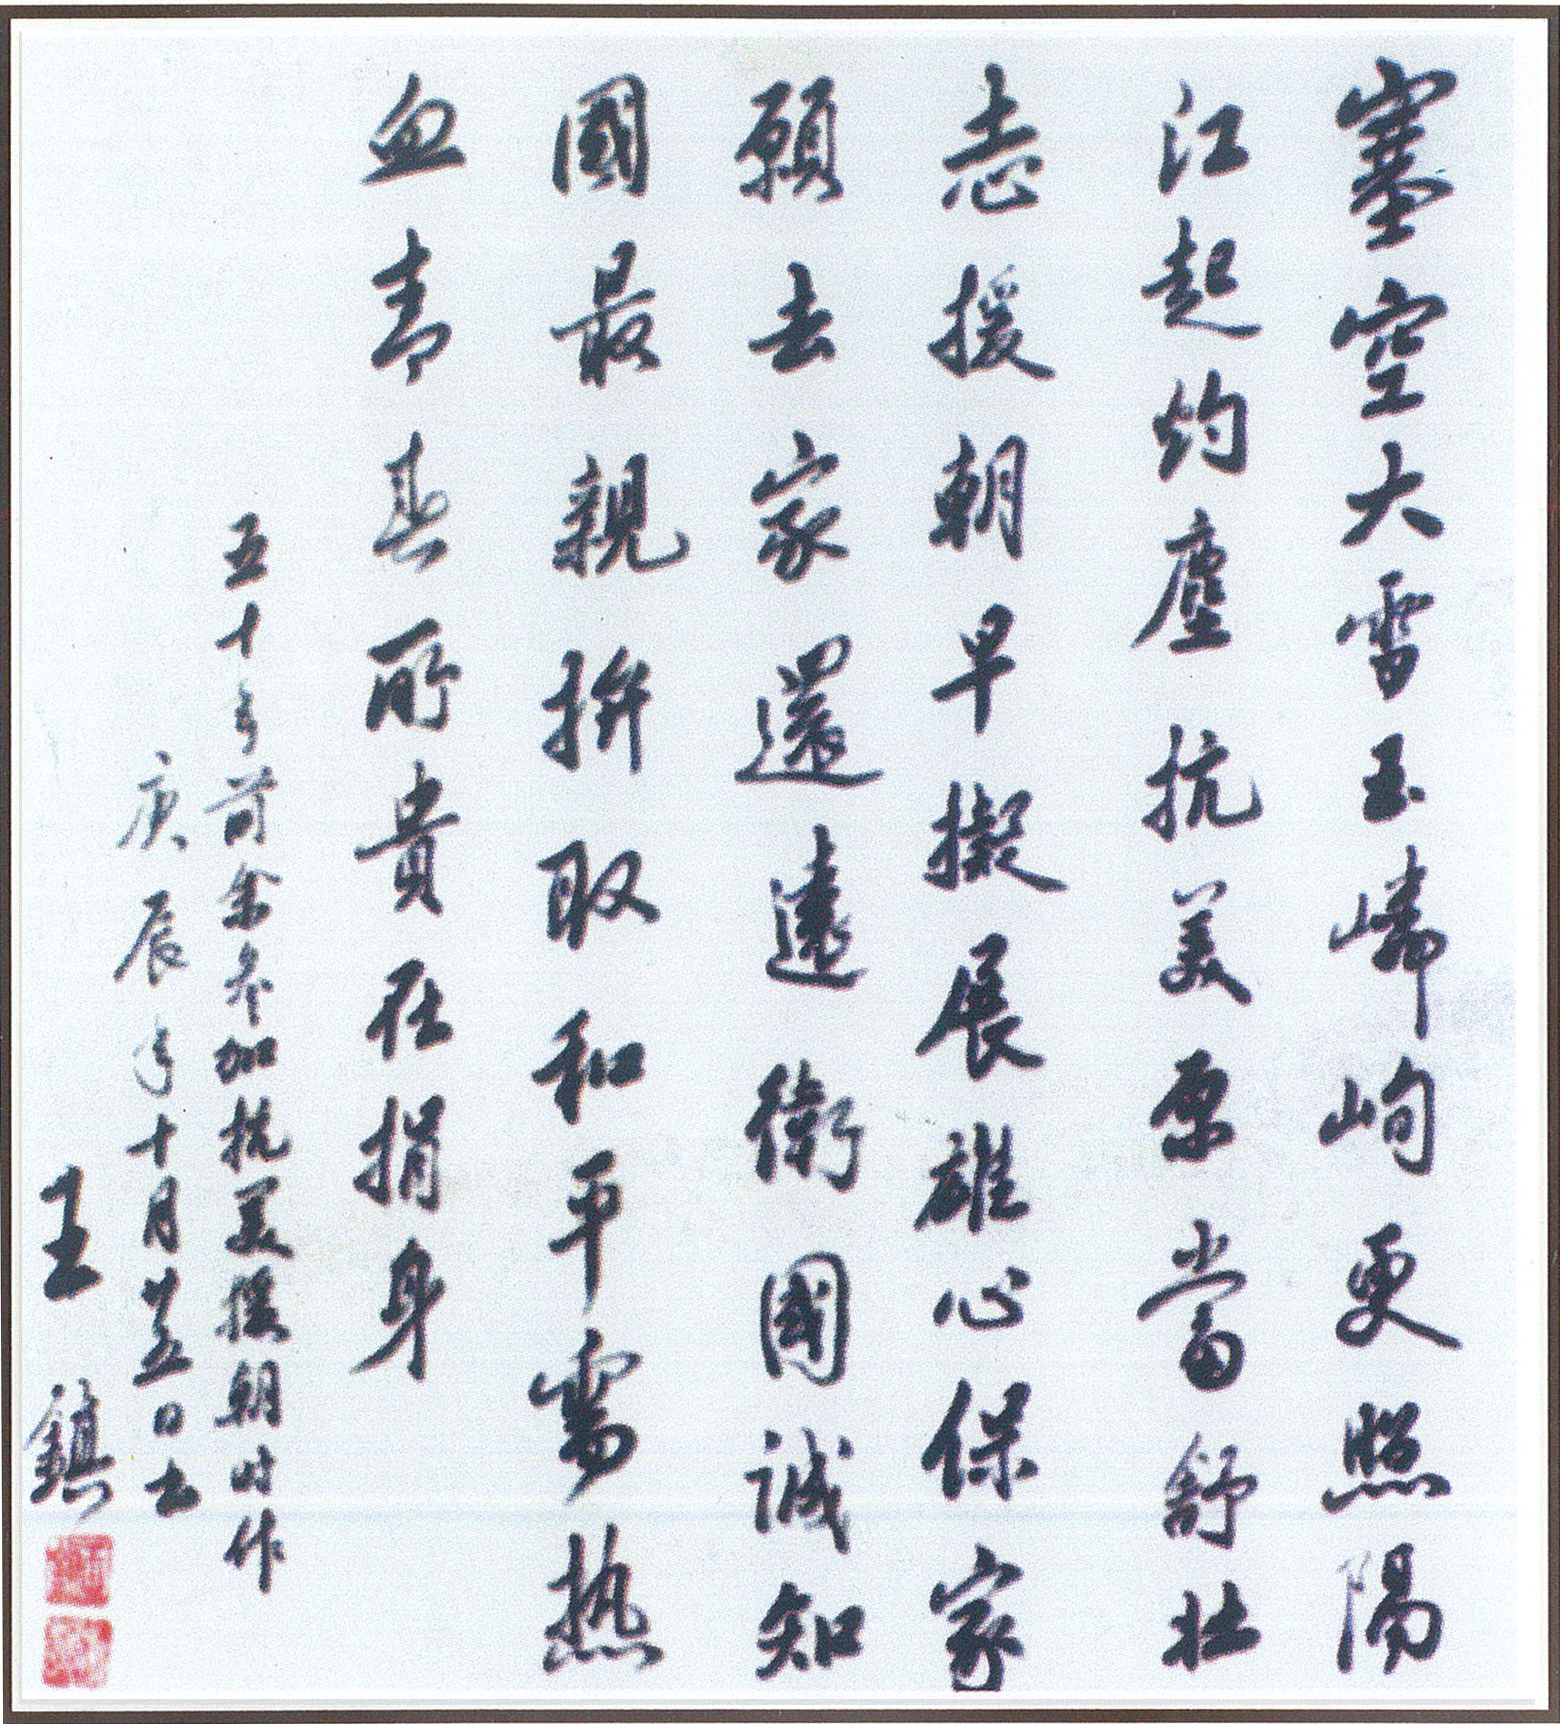 塞空大雪玉嶙峋更照陽
江起灼塵抗美原當舒壯
志援朝早擬展雄心保家
願去家還遠衛國誠知
國最親拚取和平需热
血青春所貴在捐身
五十年前余参加抗美援朝时作
庚辰年十月廿五日书
王鎮